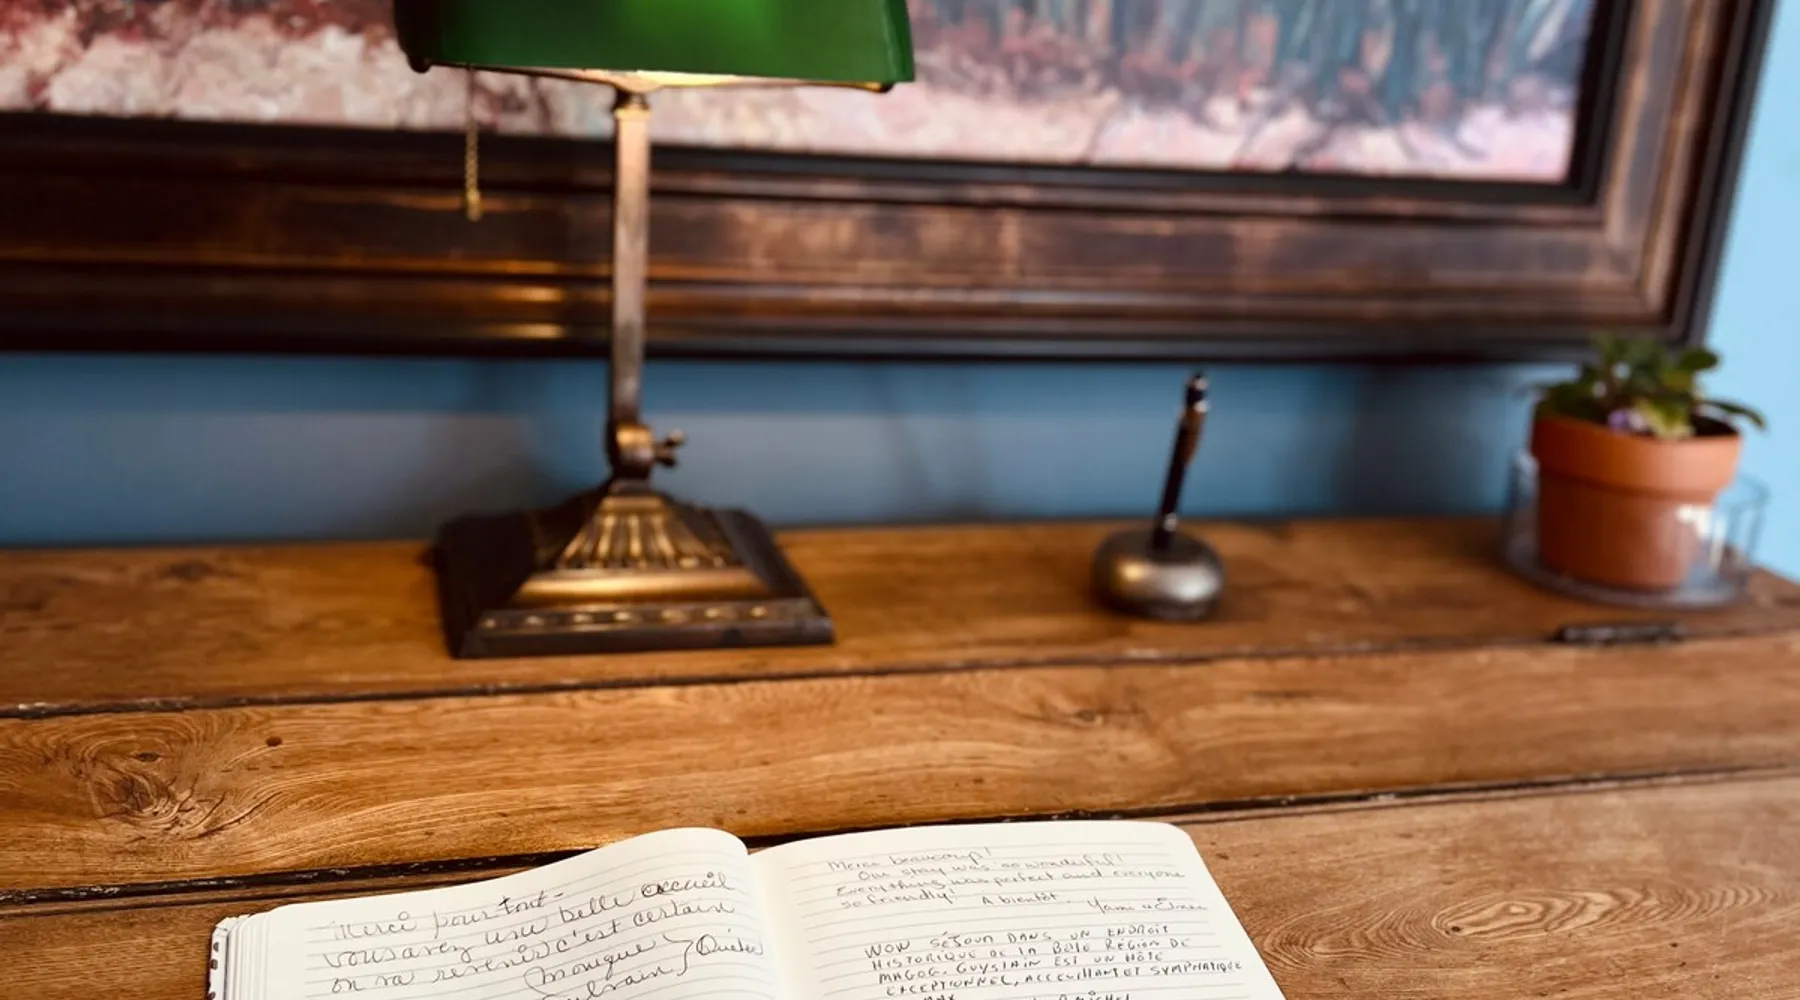 Merci pour tout -
vous avez une belle accueil
on va revenir c'est certain
Monique
Sylvain } Québec
Merci beaucoup!
Our stay was so wonderful!
Everything was perfect and everyone
so friendly! A bientôt.
WOW SÉJOUR DANS UN ENDROIT
HISTORIQUE DE LA BELLE RÉGION DE
MAGOG. GUYSLAIN EST UN HÔTE
EXCEPTIONNEL, ACCEUILLANT ET SYMPATHIQUE